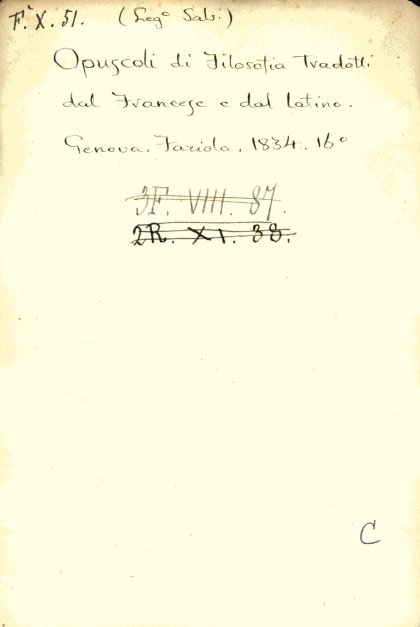 F.X.51. (Leg° Salvi)
Opuscoli di Filosofia Tradotti
dal Francese e dal latino.
Genova. Faziola. 1834. 16°
3F. VIII. 87.
2R. XI. 38.
C